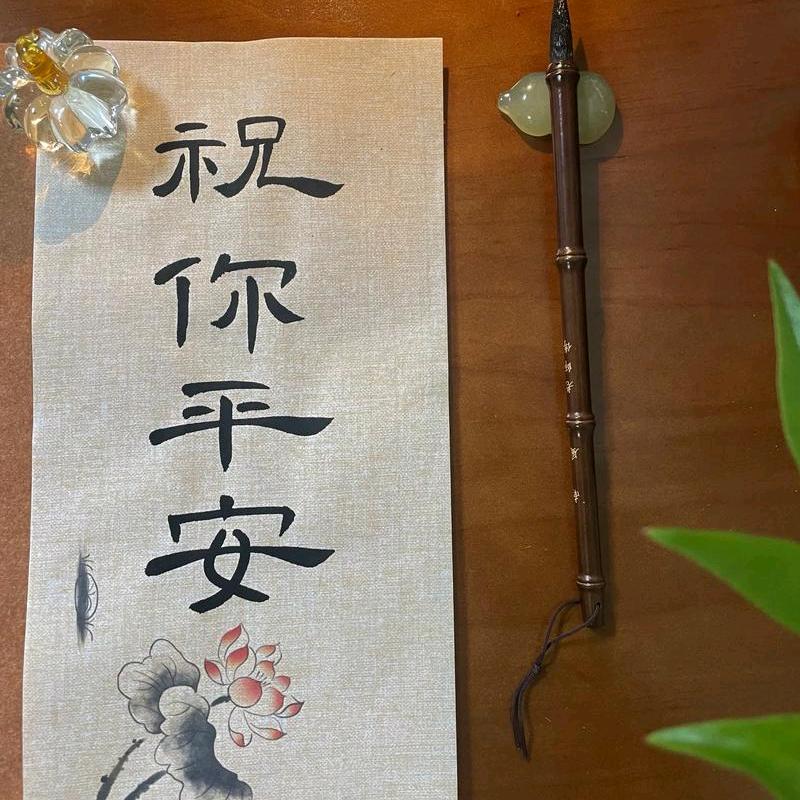 祝你平安